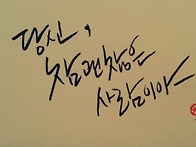 당신,
참 괜찮은
사람이야